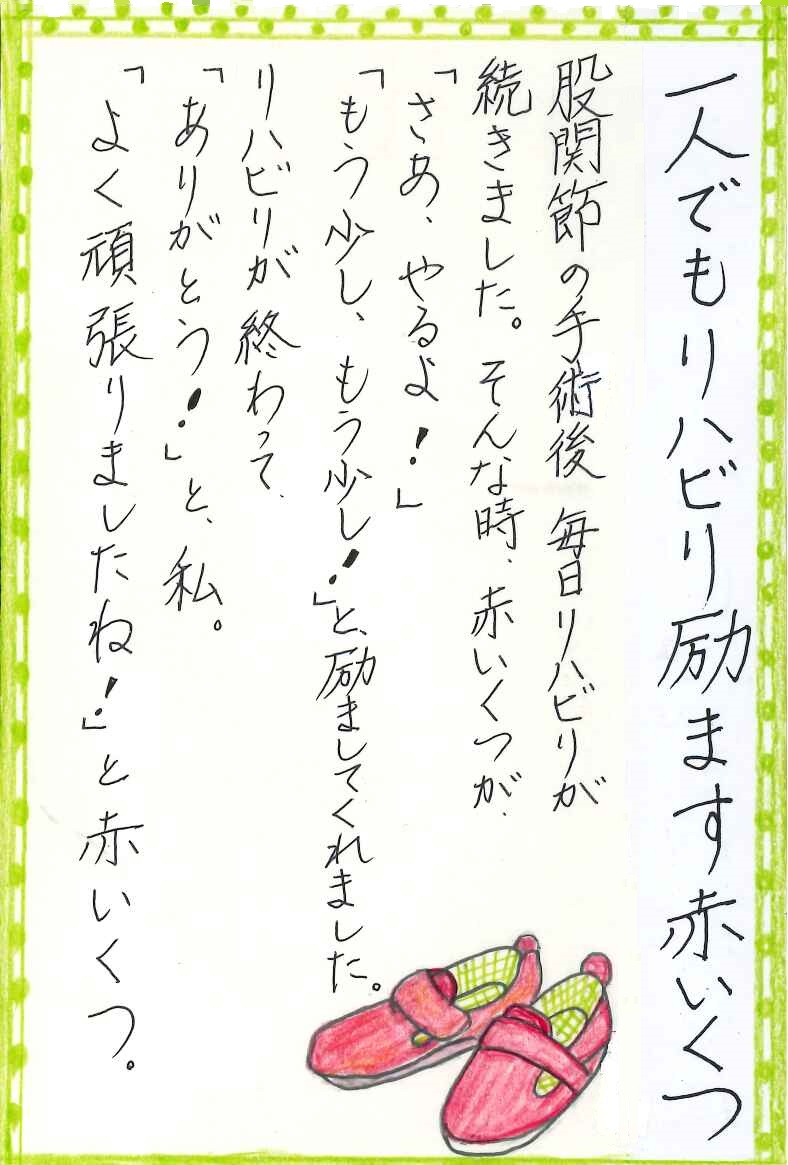 一人でもリハビリ励ます赤いくつ
股関節の手術後 毎日リハビリが
続きました。そんな時、赤いくつが、
「さあ、やるよ!」
「もう少し、もう少し!」と、励ましてくれました。
リハビリが終わって、
「ありがとう!」と、私。
「よく頑張りましたね!」と赤いくつ。